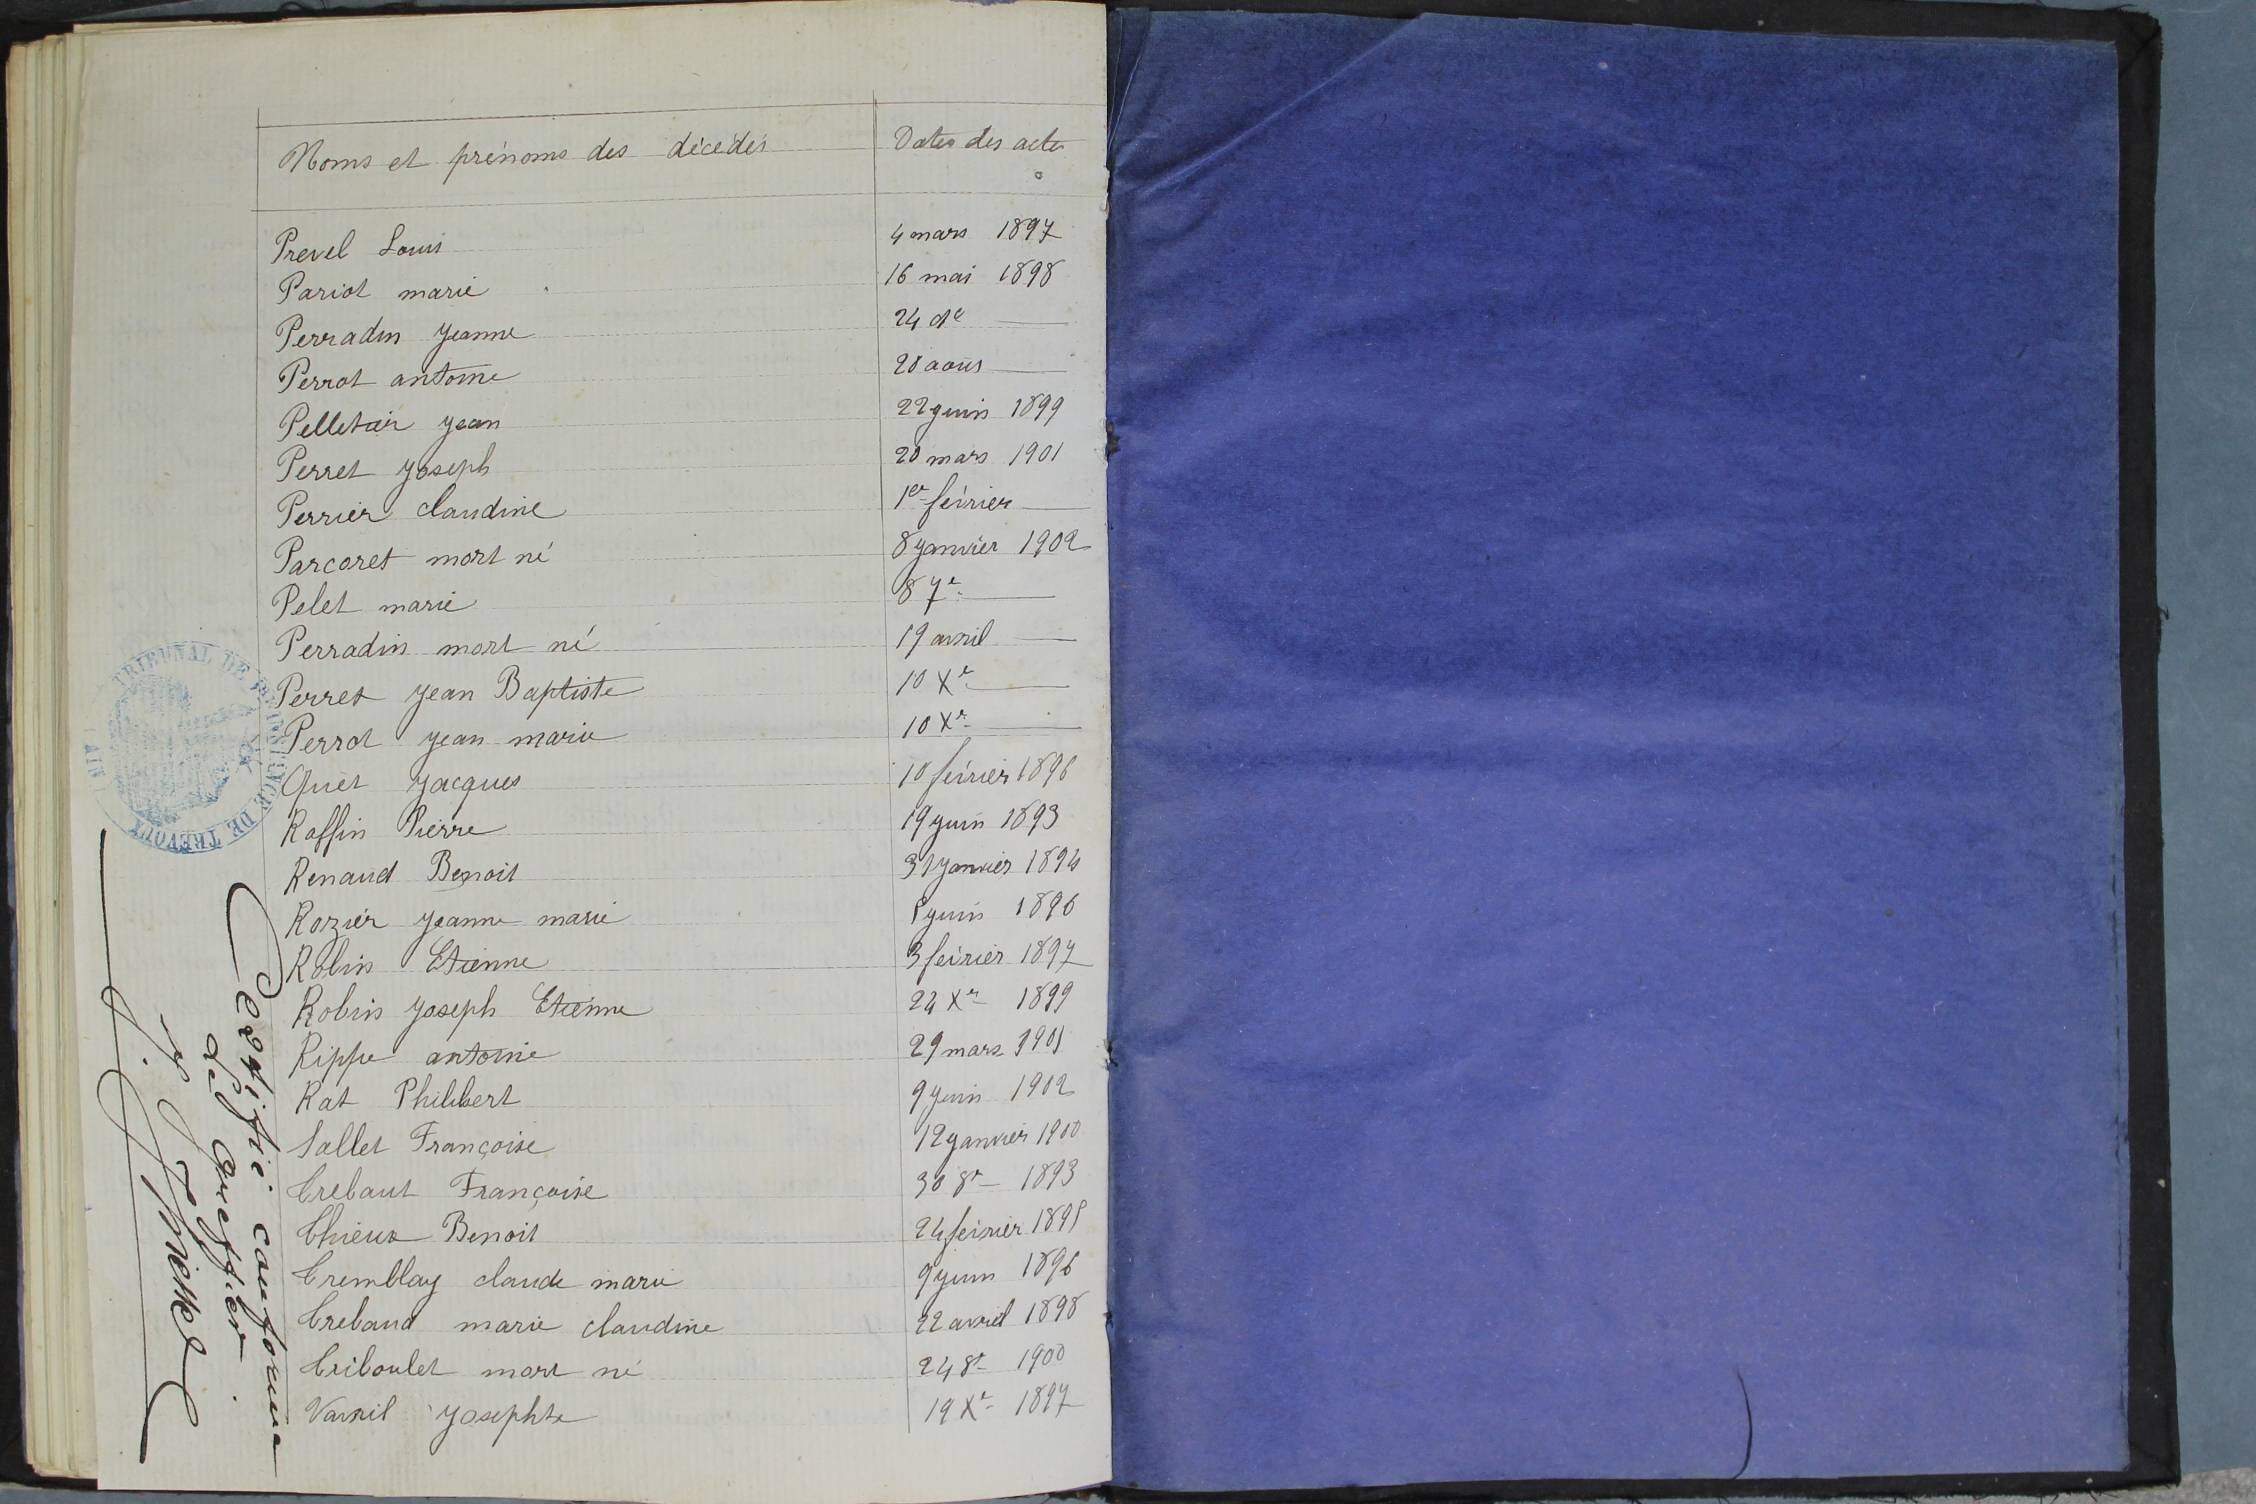 Noms et prénoms des décédés Dates des actes
Prevel Louis 4 mars 1897
Pariot marie 16 mai 1898
Perradin Jeanne 24 do —
Perrot antoine 28 août —
Pelletier Jean 22 juin 1899
Perret Joseph 20 mars 1901
Perrier claudine 1er février —
Parcoret mort né 8 janvier 1902
Pelet marie 8 7e —
Perradin mort né 19 avril —
Perret Jean Baptiste 10 Xe —
Perrot Jean marie 10 Xr —
Quet Jacques 10 février 1896
Raffin Pierre 19 juin 1893
Renaud Benoit 31 janvier 1894
Rozier Jeanne marie 8 juin 1896
Robin Etienne 3 février 1897
Robin Joseph Etienne 24 Xr 1899
Rippe antoine 29 mars 1901
Rat Philibert 9 juin 1902
Sallet Françoise 12 janvier 1900
Trebaut Françoise 30 8r 1893
Thieux Benoit 24 février 1895
Tremblay claude marie 9 juin 1896
Trebaud marie claudine 22 avril 1898
Triboulet mort né 24 8r 1900
Vavril Josephte 19 Xe 1897
TRIBUNAL DE 1RE INSTANCE DE TREVOUX (AIN)
Certifié conforme
Le Greffier